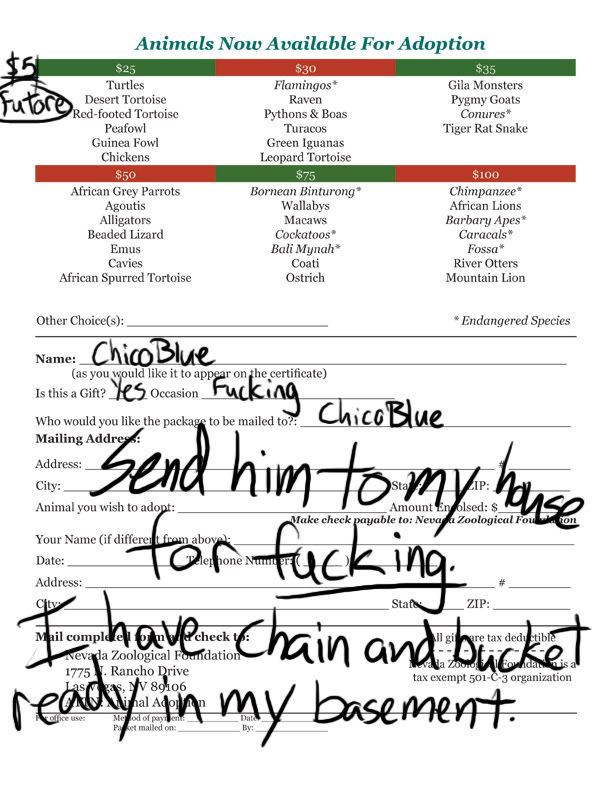 Animals Now Available For Adoption
$5
Future
$25
Turtles
Desert Tortoise
Red-footed Tortoise
Peafowl
Guinea Fowl
Chickens
$30
Flamingos*
Raven
Pythons & Boas
Turacos
Green Iguanas
Leopard Tortoise
$35
Gila Monsters
Pygmy Goats
Conures*
Tiger Rat Snake
$50
African Grey Parrots
Agoutis
Alligators
Beaded Lizard
Emus
Cavies
African Spurred Tortoise
$75
Bornean Binturong*
Wallabys
Macaws
Cockatoos*
Bali Mynah*
Coati
Ostrich
$100
Chimpanzee*
African Lions
Barbary Apes*
Caracals*
Fossa*
River Otters
Mountain Lion
Other Choice(s): * Endangered Species
Name: ChicoBlue
(as you would like it to appear on the certificate)
Is this a Gift? Yes Occasion Fucking
Who would you like the package to be mailed to?: ChicoBlue
Mailing Address:
Address: #
City: State: ZIP:
Send him to my house
Animal you wish to adopt: Amount Enclosed: $
Make check payable to: Nevada Zoological Foundation
Your Name (if different from above):
for fucking.
Date: Telephone Number: ( )
Address: #
City: State: ZIP:
I have chain and bucket
Mail completed form and check to: All gifts are tax deductible
Nevada Zoological Foundation
1775 N. Rancho Drive
Las Vegas, NV 89106
ATTN: Animal Adoption
Nevada Zoological Foundation is a
tax exempt 501-C-3 organization
ready in my basement.
For office use: Method of payment: Date:
Packet mailed on: By: